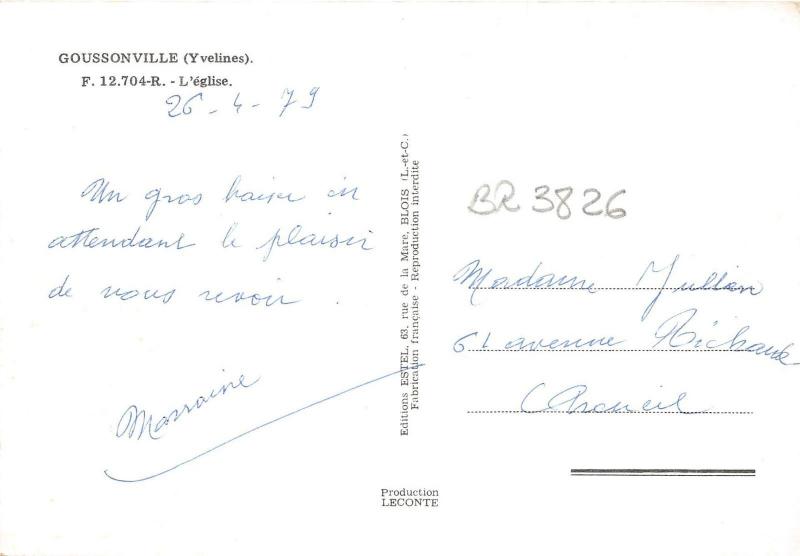 GOUSSONVILLE (Yvelines).
F. 12.704-R. - L'église.
26 - 4 - 79
Un gros baiser en
attendant le plaisir
de vous revoir .
Marraine
Editions ESTEL, 63, rue de la Mare, BLOIS (L.-et-C.)
Fabrication française - Reproduction interdite
Production
LECONTE
BR 3826
Madame Jullian
61 avenue Richaud
Arcueil